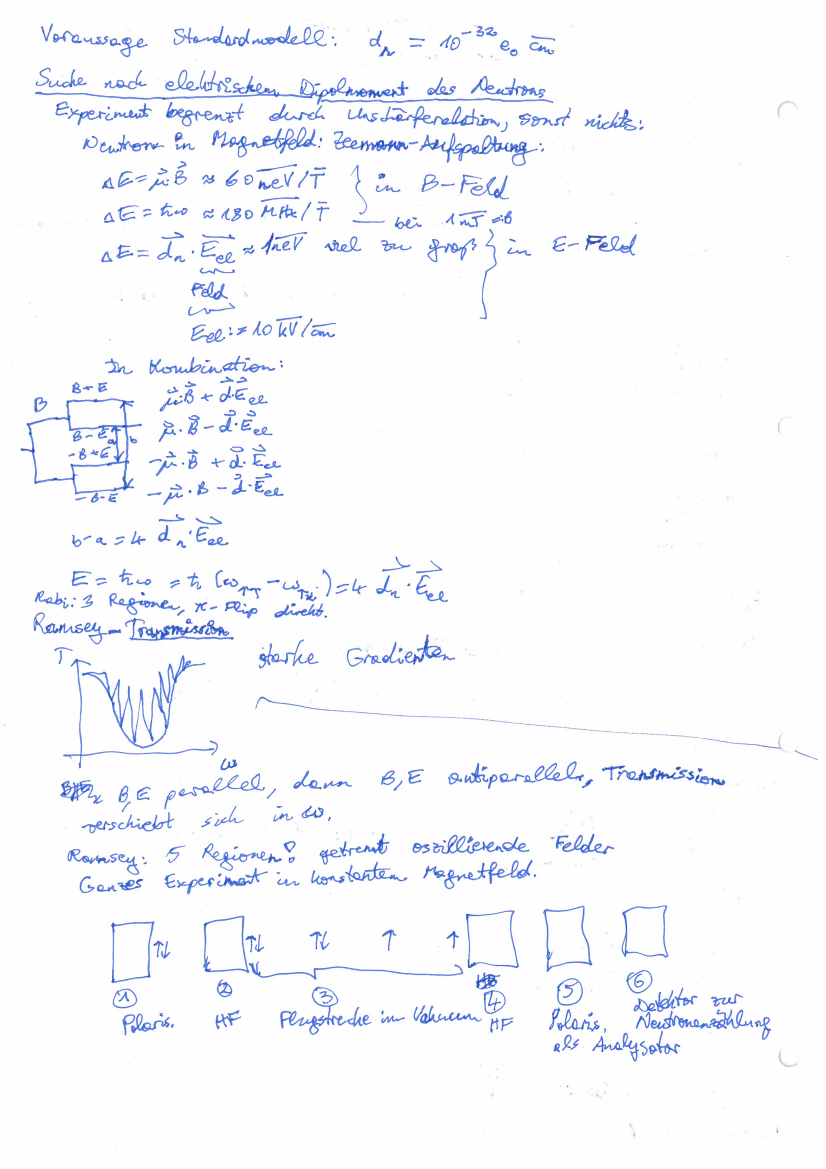 Voraussage Standardmodell: dₙ = 10⁻³² e₀ cm
Suche nach elektrischem Dipolmoment des Neutrons
Experiment begrenzt durch Unschärferelation, sonst nichts:
Neutron in Magnetfeld: Zeemann-Aufspaltung:
ΔE = μ⃗·B⃗ ≈ 60 neV/T } in B-Feld
ΔE = ħω ≈ 180 MHz/T — bei 1mT =B
ΔE = d⃗ₙ·E⃗ₑₗ ≈ 1neV viel zu groß } in E-Feld
Feld
Eₑₗ := 10 kV/cm
In Kombination:
B B+E μ⃗·B⃗ + d⃗·E⃗ₑₗ
B-E a b μ⃗·B⃗ - d⃗·E⃗ₑₗ
-B+E -μ⃗·B⃗ + d⃗·E⃗ₑₗ
-B-E -μ⃗·B - d⃗·E⃗ₑₗ
b-a = 4 d⃗ₙ·E⃗ₑₗ
E = ħω = ħ (ω↑↑ - ω↑↓) = 4 d⃗ₙ·E⃗ₑₗ
Rabi: 3 Regionen, π-Flip direkt.
Ramsey-Transmission
T starke Gradienten
ω
B,E parallel, dann B,E antiparallel, Transmission
verschiebt sich in ω.
Ramsey: 5 Regionen! getrennt oszillierende Felder
Ganzes Experiment in konstantem Magnetfeld.
↑↓ ↑↓ ↑↓ ↑ ↑
① ② ③ ④ ⑤ ⑥
Polaris. HF Flugstrecke im Vakuum HF Polaris. als Analysator Detektor zur Neutronenzählung